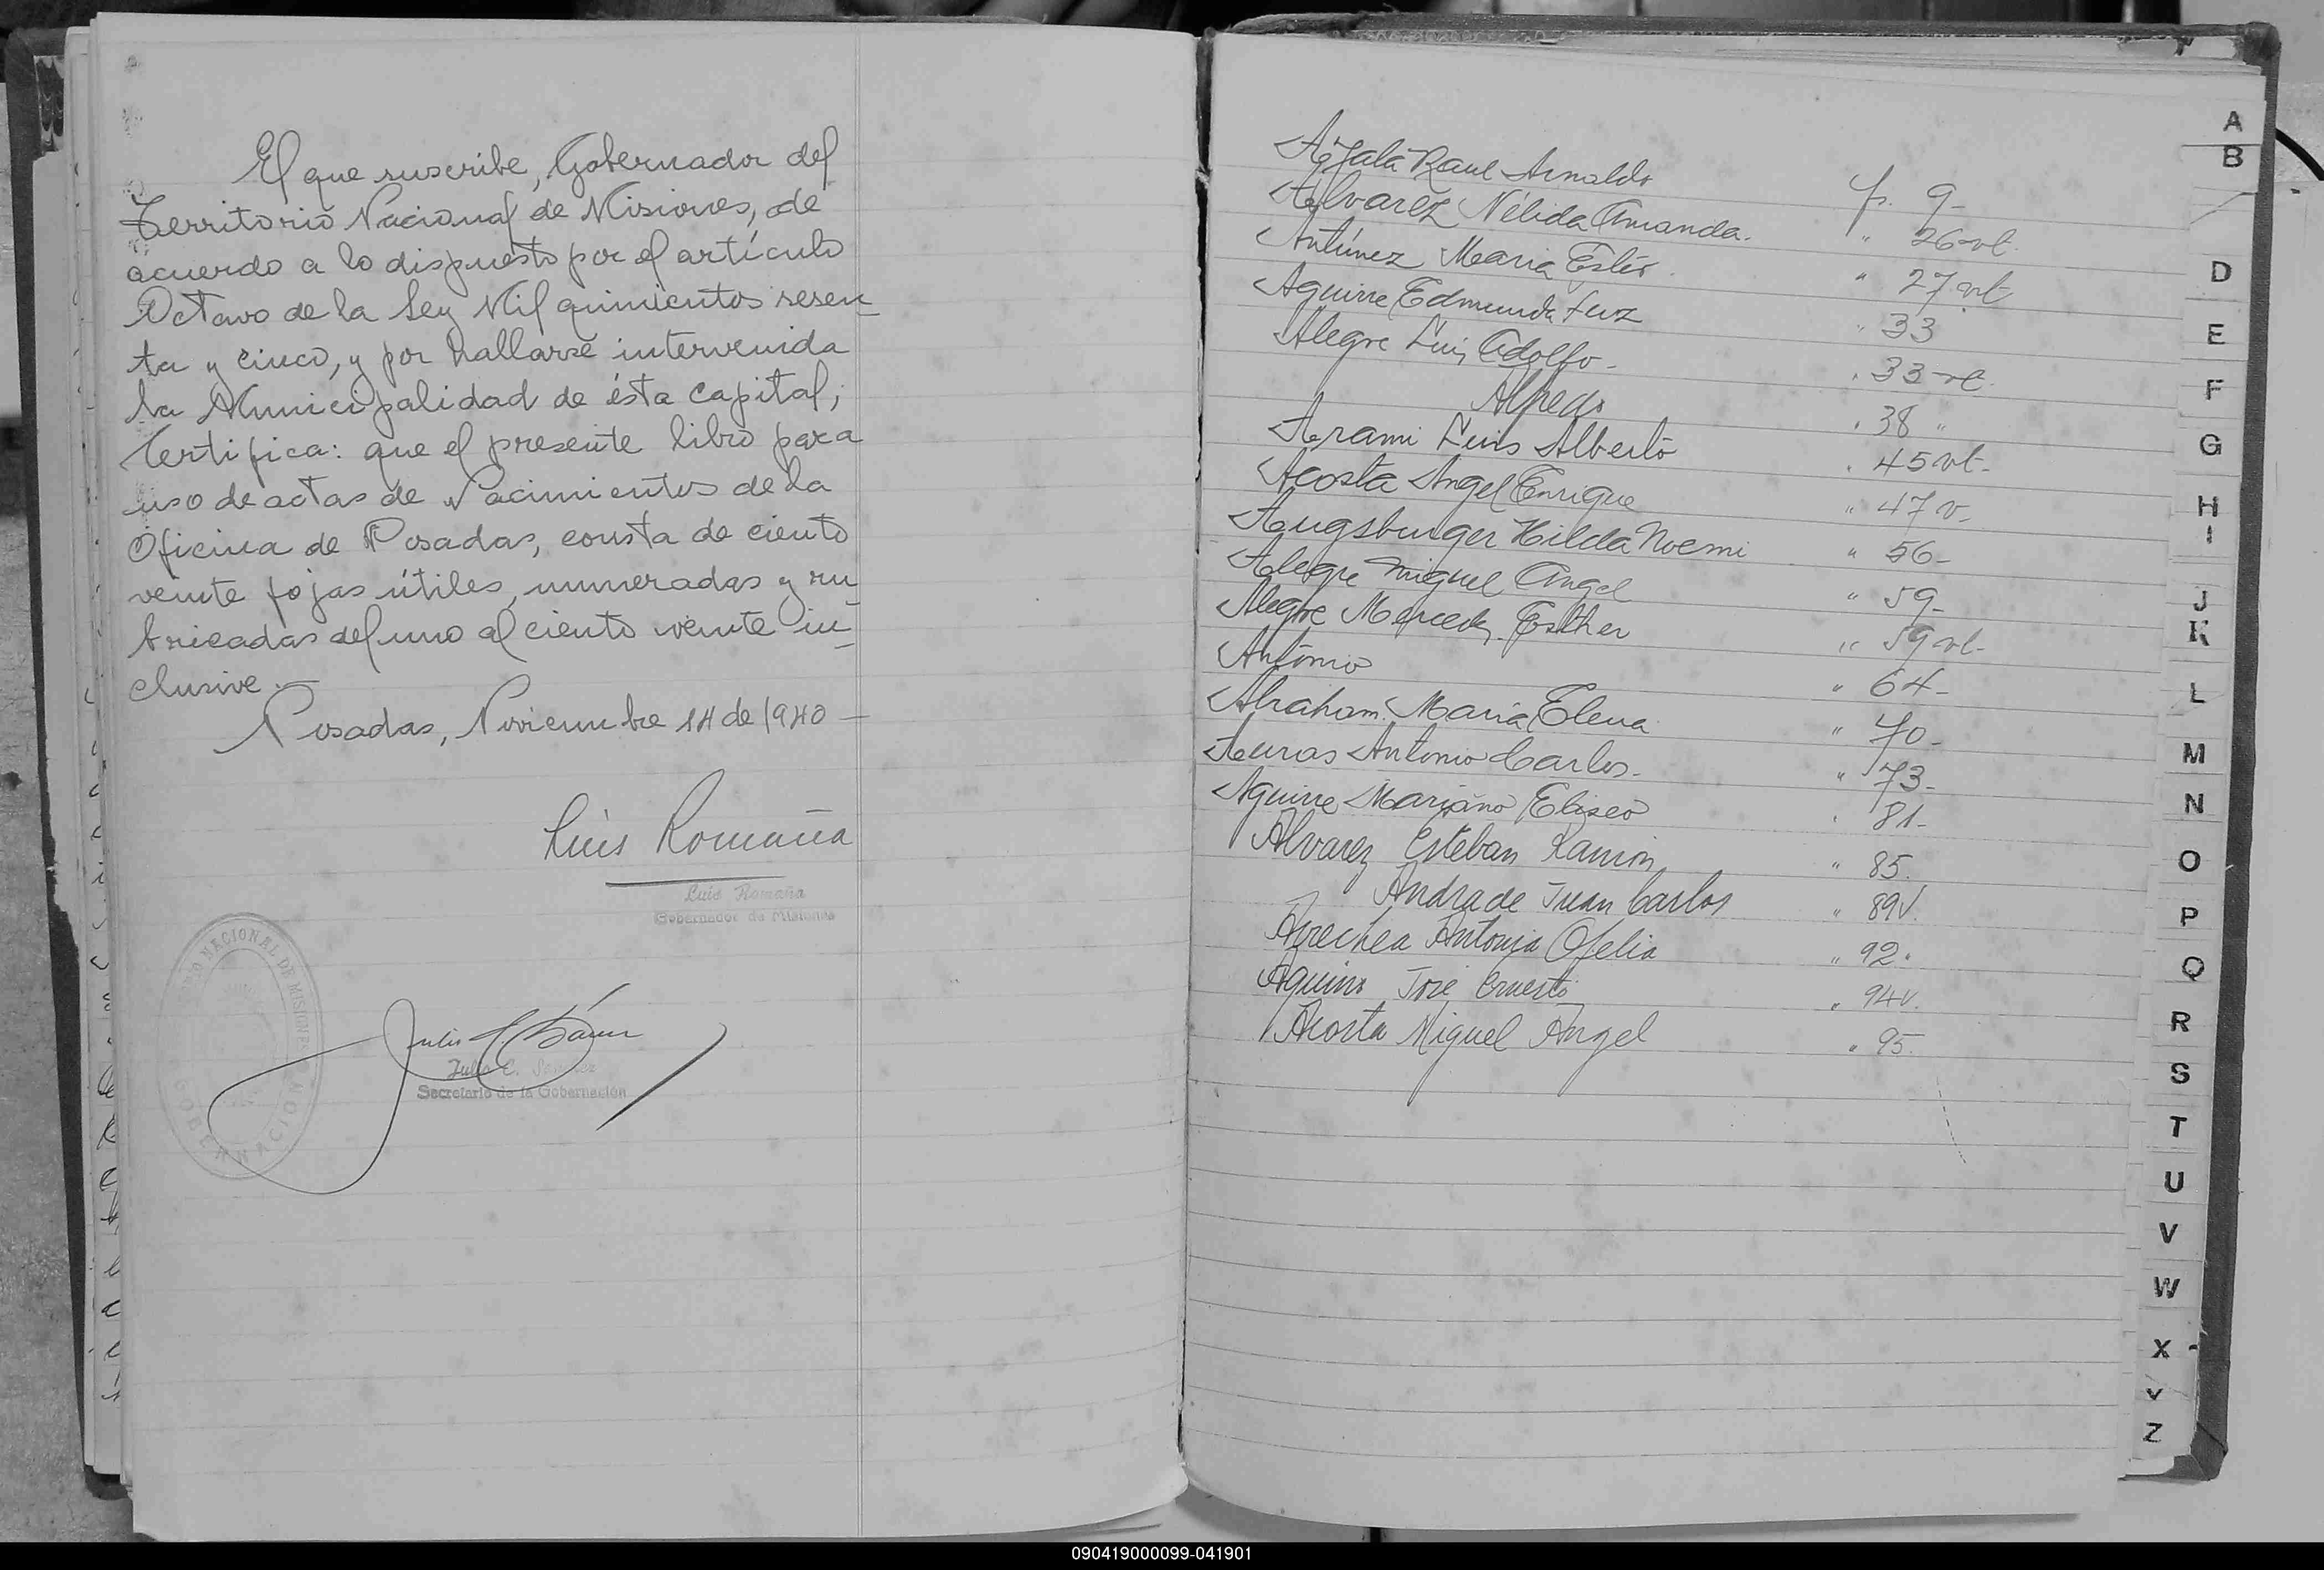 El que suscribe, Gobernador del
Territorio Nacional de Misiones, de
acuerdo a lo dispuesto por el artículo
Octavo de la Ley Mil quinientos sesen-
ta y cinco, y por hallarse intervenida
la Municipalidad de ésta Capital;
Certifica: que el presente libro para
uso de actas de Nacimientos de la
Oficina de Posadas, consta de ciento
veinte fojas útiles, numeradas y ru
bricadas del uno al ciento veinte in-
clusive.-
Posadas, Noviembre 14 de 1940-
Luis Romaña
Luis Romaña
Gobernador de Misiones
NACIONAL DE MISIONES
GOBERNACION
Julio
Julio C.
Secretario de la Gobernación
Raul Arnaldo f. 9-
Alvarez Nélida Amanda. " 26 vt.
Antúnez Maria Ester " 27 vt
Aguirre Edmundo Luz " 33
Alegre Luis Adolfo - " 33 vt.
Alfredo " 38 "
Arami Luis Alberto " 45 vt-
Acosta Angel Enrique " 47 v-
Augsburger Hilda Noemi " 56-
Alegre Miguel Angel " 59-
Alegre Mercedes Esther " 59 vt-
Antonio " 64-
Abraham Maria Elena " 70-
Antonio Carlos- " 73-
Aguirre Mariano Eliseo " 81-
Alvarez Esteban Ramón " 85.
Andrade Juan Carlos " 89v.
Arrechea Antonia Ofelia " 92.
Aquino José Ernesto " 94v.
Acosta Miguel Angel " 95.
A
B
D
E
F
G
H
I
J
K
L
M
N
O
P
Q
R
S
T
U
V
W
X
Y
Z
090419000099-041901